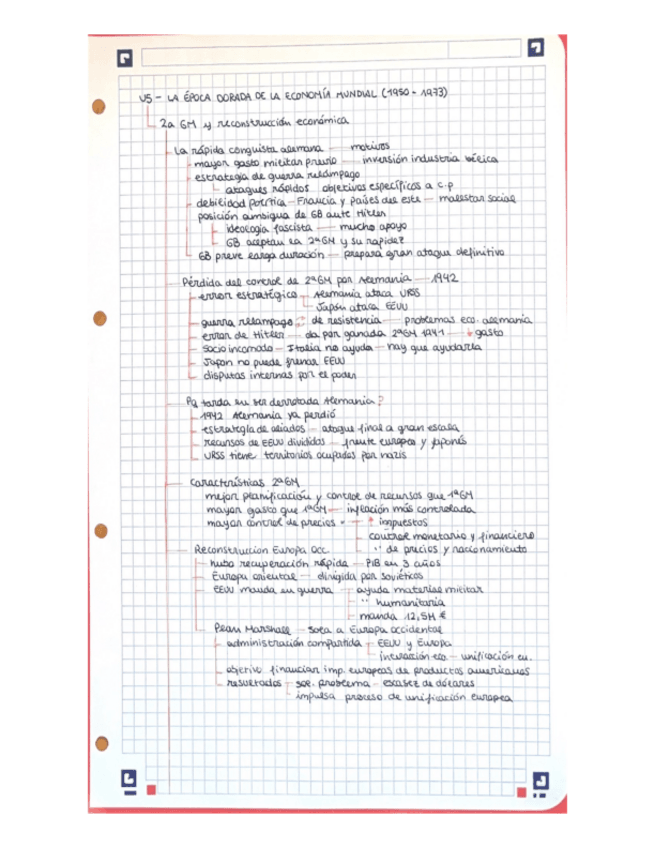 U5 - LA ÉPOCA DORADA DE LA ECONOMÍA MUNDIAL (1950 - 1973)
2a GM y reconstrucción económica
La rápida conquista alemana motivos
mayor gasto militar previo inversión industria bélica
estrategia de guerra relámpago
ataques rápidos objetivos específicos a c.p
debilidad política - Francia y países del este - malestar social
posición ambigua de GB ante Hitler
ideología fascista mucho apoyo
GB aceptan la 2ªGM y su rapidez
GB prevé larga duración - prepara gran ataque definitivo
Pérdida del control de 2ªGM por Alemania - 1942
error estratégico Alemania ataca URSS
Japón ataca EEUU
guerra relámpago de resistencia - problemas eco. alemania
error de Hitler - da por ganada 2ªGM 1941 - ↓ gasto
socio incomodo - Italia no ayuda - hay que ayudarla
Japon no puede frenar EEUU
disputas internas por el poder
Pq tarda en ser derrotada Alemania?
1942 Alemania ya perdió
estrategia de aliados - ataque final a gran escala
recursos de EEUU divididos - frente europeo y japonés
URSS tiene territorios ocupados por nazis
Características 2ªGM
mejor planificación y control de recursos que 1ªGM
mayor gasto que 1ªGM - inflación más controlada
mayor control de precios impuestos
control monetario y financiero
'' de precios y racionamiento
Reconstruccion Europa occ.
hubo recuperación rápida - PIB en 3 años
Europa oriental - dirigida por soviéticos
EEUU manda en guerra - ayuda material militar
'' humanitaria
manda 12,5M €
Plan Marshall - solo a Europa occidental
administración compartida - EEUU y Europa
eco - unificación eu.
objetivo financiar imp. europeas de productos americanos
resultados - problema - escasez de dólares
impulsa proceso de unificación europea